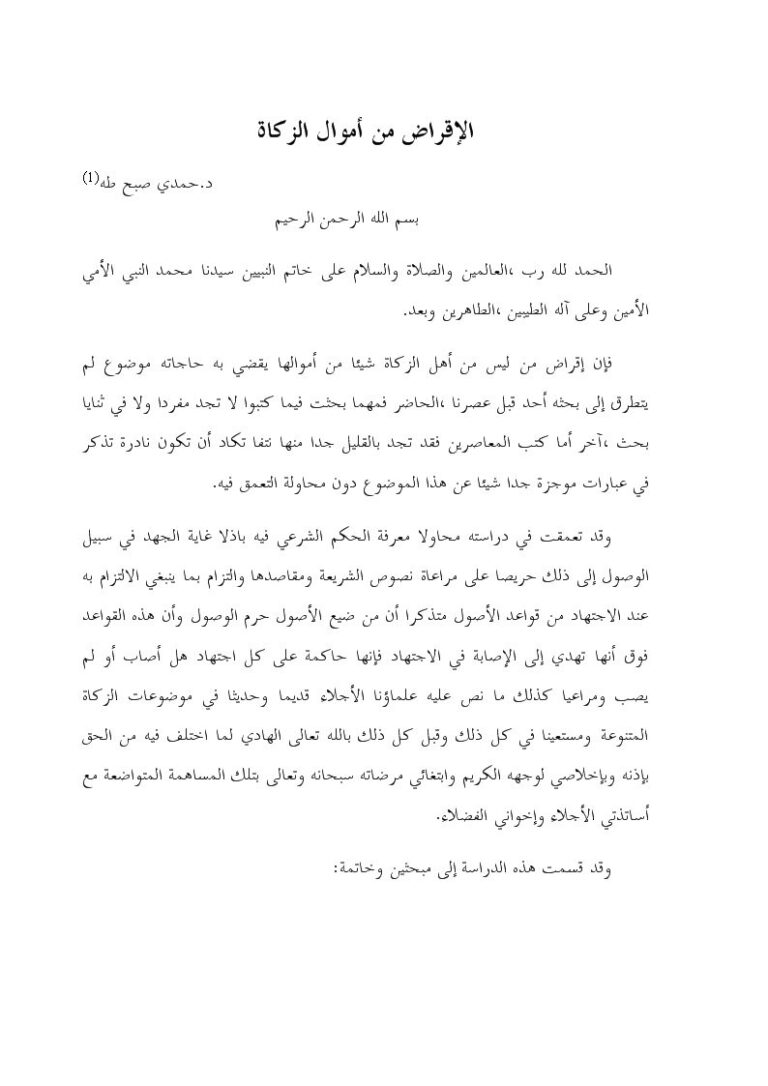 الإقراض من أموال الزكاة
د.حمدي صبح طه(1)
بسم الله الرحمن الرحيم
الحمد لله رب ،العالمين والصلاة والسلام على خاتم النبيين سيدنا محمد النبي الأمي
الأمين وعلى آله الطيبين ،الطاهرين وبعد.
فإن إقراض من ليس من أهل الزكاة شيئا من أموالها يقضي به حاجاته موضوع لم
يتطرق إلى بحثه أحد قبل عصرنا ،الحاضر فمهما بحثت فيما كتبوا لا تجد مفردا ولا في ثنايا
بحث ،آخر أما كتب المعاصرين فقد تجد بالقليل جدا منها نتفا تكاد أن تكون نادرة تذكر
في عبارات موجزة جدا شيئا عن هذا الموضوع دون محاولة التعمق فيه.
وقد تعمقت في دراسته محاولا معرفة الحكم الشرعي فيه باذلا غاية الجهد في سبيل
الوصول إلى ذلك حريصا على مراعاة نصوص الشريعة ومقاصدها والتزام بما ينبغي الالتزام به
عند الاجتهاد من قواعد الأصول متذكرا أن من ضيع الأصول حرم الوصول وأن هذه القواعد
فوق أنها تهدي إلى الإصابة في الاجتهاد فإنها حاكمة على كل اجتهاد هل أصاب أو لم
يصب ومراعيا كذلك ما نص عليه علماؤنا الأجلاء قديما وحديثا في موضوعات الزكاة
المتنوعة ومستعينا في كل ذلك وقبل كل ذلك بالله تعالى الهادي لما اختلف فيه من الحق
بإذنه وبإخلاصي لوجهه الكريم وابتغائي مرضاته سبحانه وتعالى بتلك المساهمة المتواضعة مع
أساتذتي الأجلاء وإخواني الفضلاء.
وقد قسمت هذه الدراسة إلى مبحثين وخاتمة: